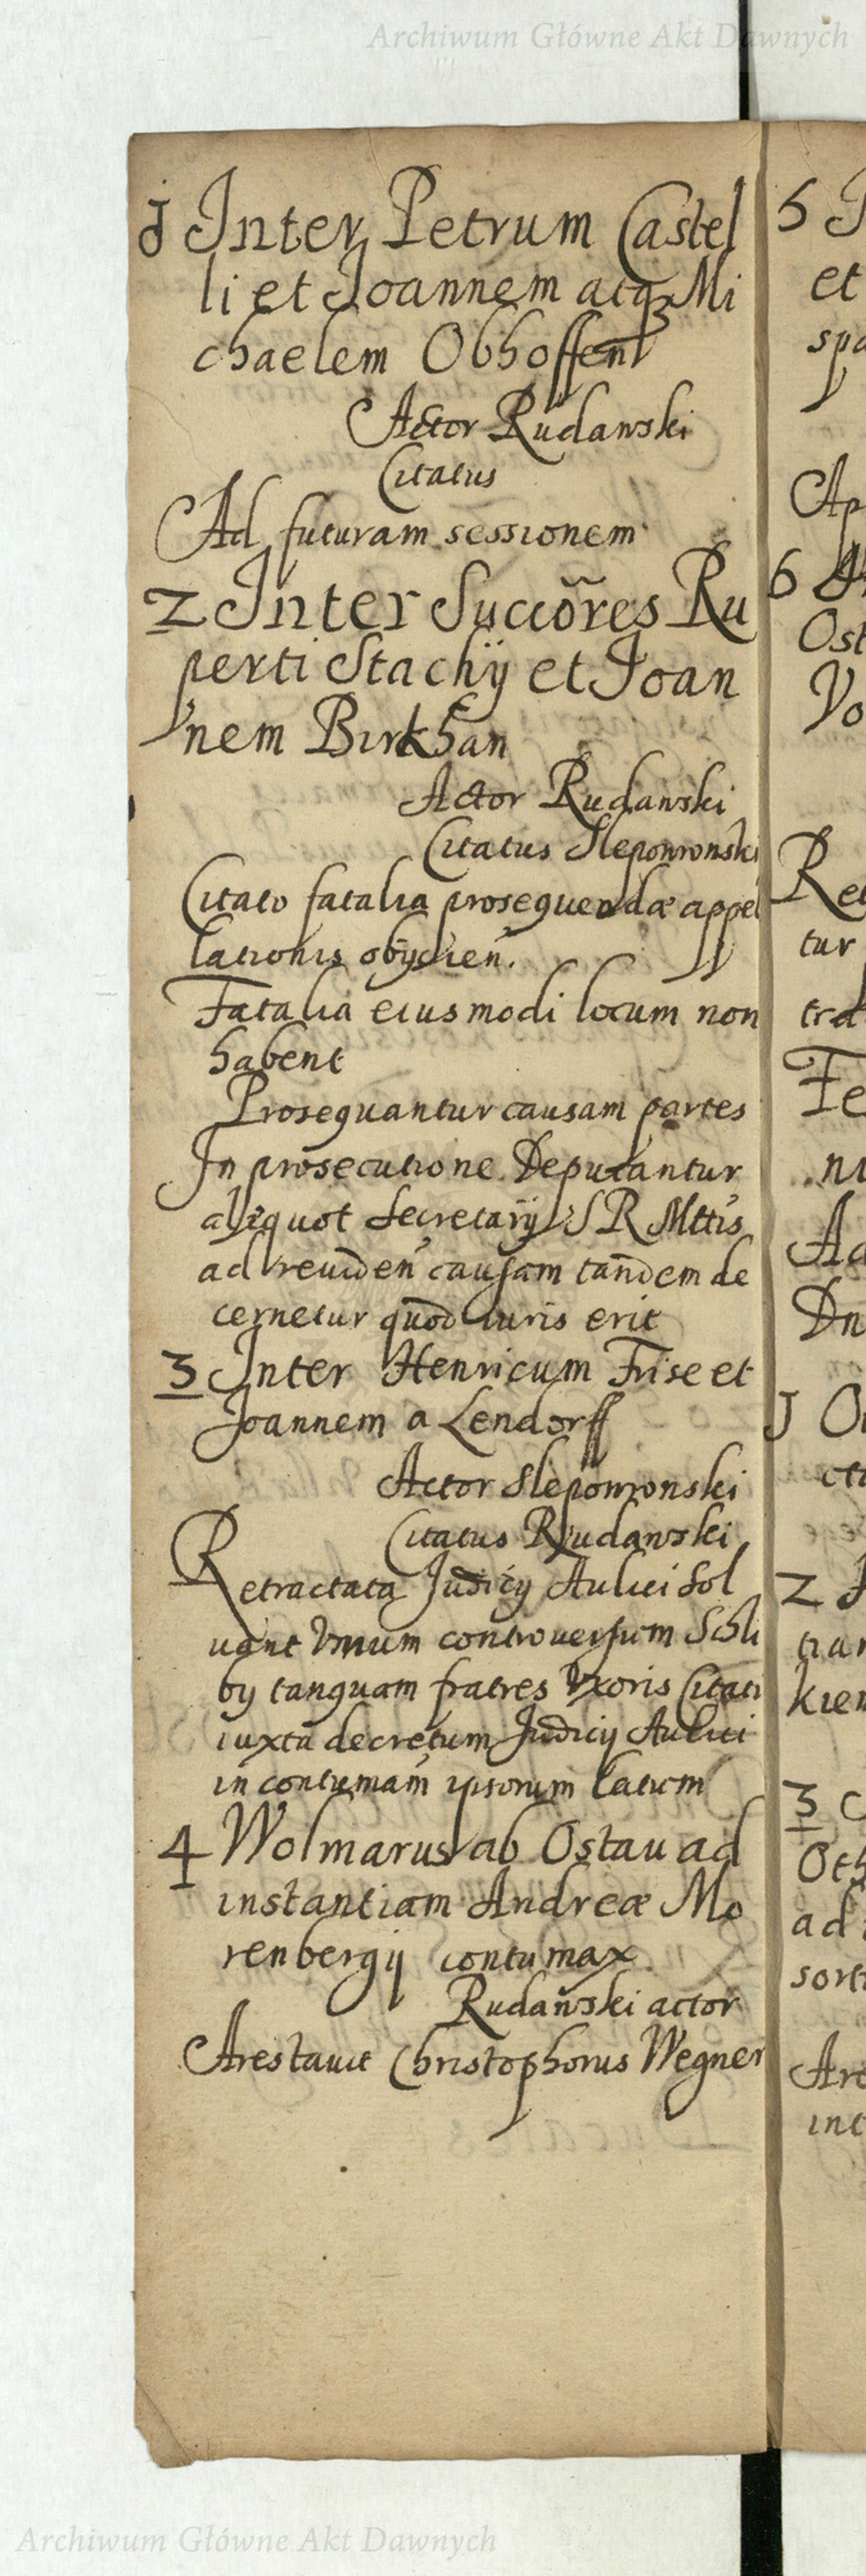 Archiwum Główne Akt Dawnych
1 Inter Petrum Castel
li et Joannem atq₃ Mi
chaelem Obhoffen
Actor Rudawski
Citatus
Ad futuram sessionem
2 Inter Succõres Ru
perti Stachÿ et Joan
nem Birkhan
Actor Rudawski
Citatus Slepowronski
Citato fatalia prosequendæ appel
lationis obÿcien.
Fatalia eiusmodi locum non
habent
Prosequantur causam partes
In prosecutione Deputantur
aliquot Secretarÿ S R Mttis
ad reuiden causam tandem de
cernetur quod iuris erit
3 Inter Henricum Frise et
Joannem a Lendorff
Actor Slepowronski
Citatus Rudawski
Retractata Judicÿ Aulici Sol
uant Vnum controuersum Schli
by tanquam fratres Vxoris Citati
iuxta decretum Judicij Aulici
in contumam ipsorum latum
4 Wolmarus ab Ostau ad
instantiam Andreæ Mo
renbergij contumax
Rudawski actor
Arestauit Christophorus Wegner
5
et
6
Ost
Vo
Ret
tur
tra
Fe
Ad
Dn
1
2
tian
kien
3
Oth
ad
sort
Are
int
Archiwum Główne Akt Dawnych